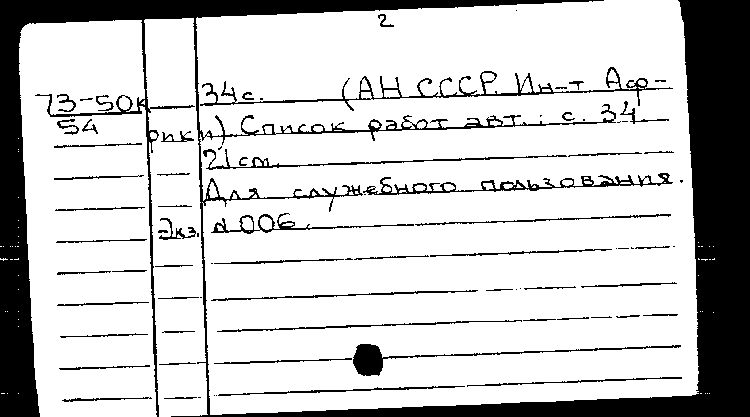 2
73-50к 34с. (АН СССР. Ин-т Аф-
54 рики). Список работ авт.: с. 34.
21см.
Для служебного пользования.
Экз. №006.